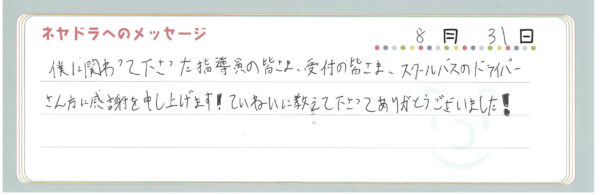 ネヤドラへのメッセージ
8月 31日
僕に関わって下さった指導員の皆さま、受付の皆さま、スクールバスのドライバー
さん方に感謝を申し上げます!ていねいに教えて下さってありがとうございました!